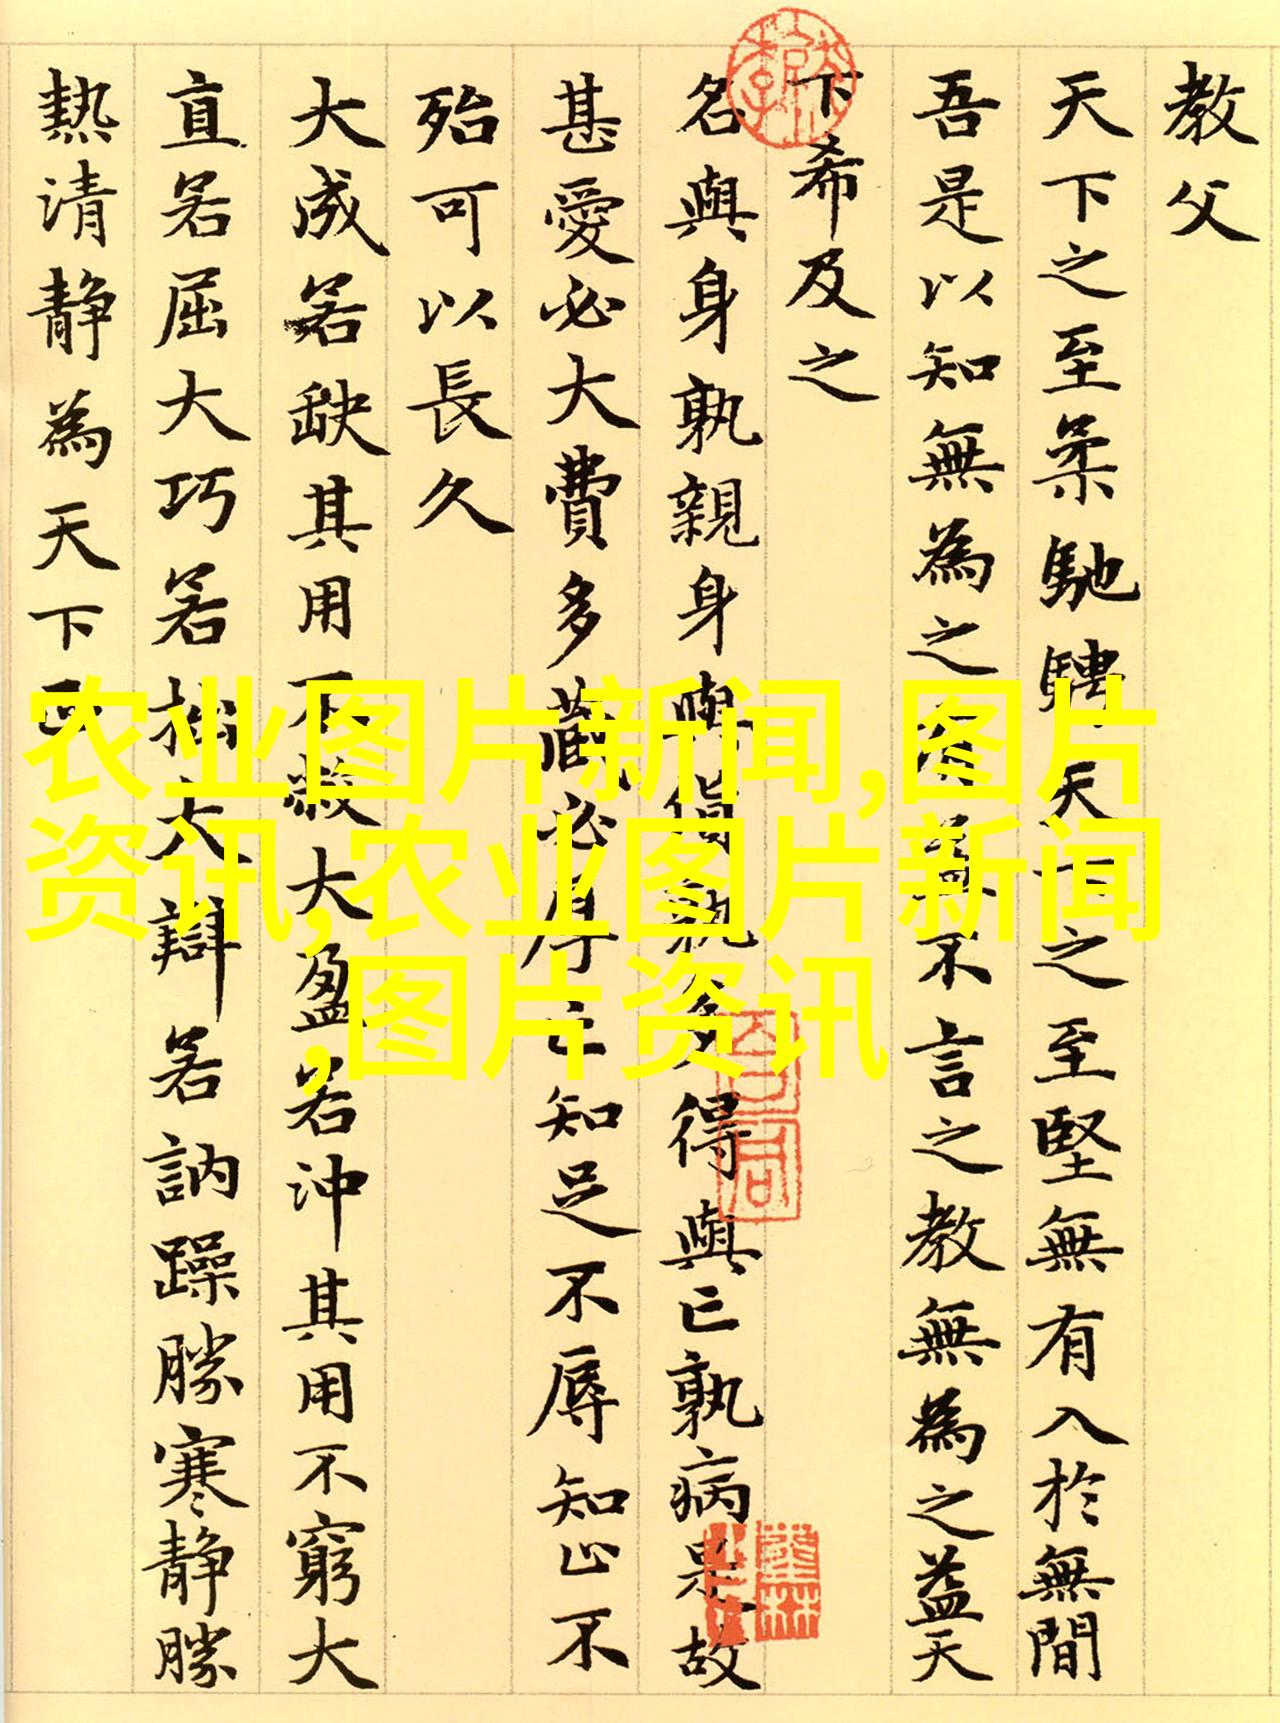 教父
天下之至柔馳騁天下之至堅無有入於無間
吾是以知無為之有益不言之教無為之益天
下希及之
名與身孰親身與貨孰多得與亡孰病是故
甚愛必大費多藏必厚亡知足不辱知止不
殆可以長久
大成若缺其用不敝大盈若沖其用不窮大
直若屈大巧若拙大辯若訥躁勝寒靜勝
熱清靜為天下正
农业图片新闻,图片
资讯,农业图片新闻
,图片资讯